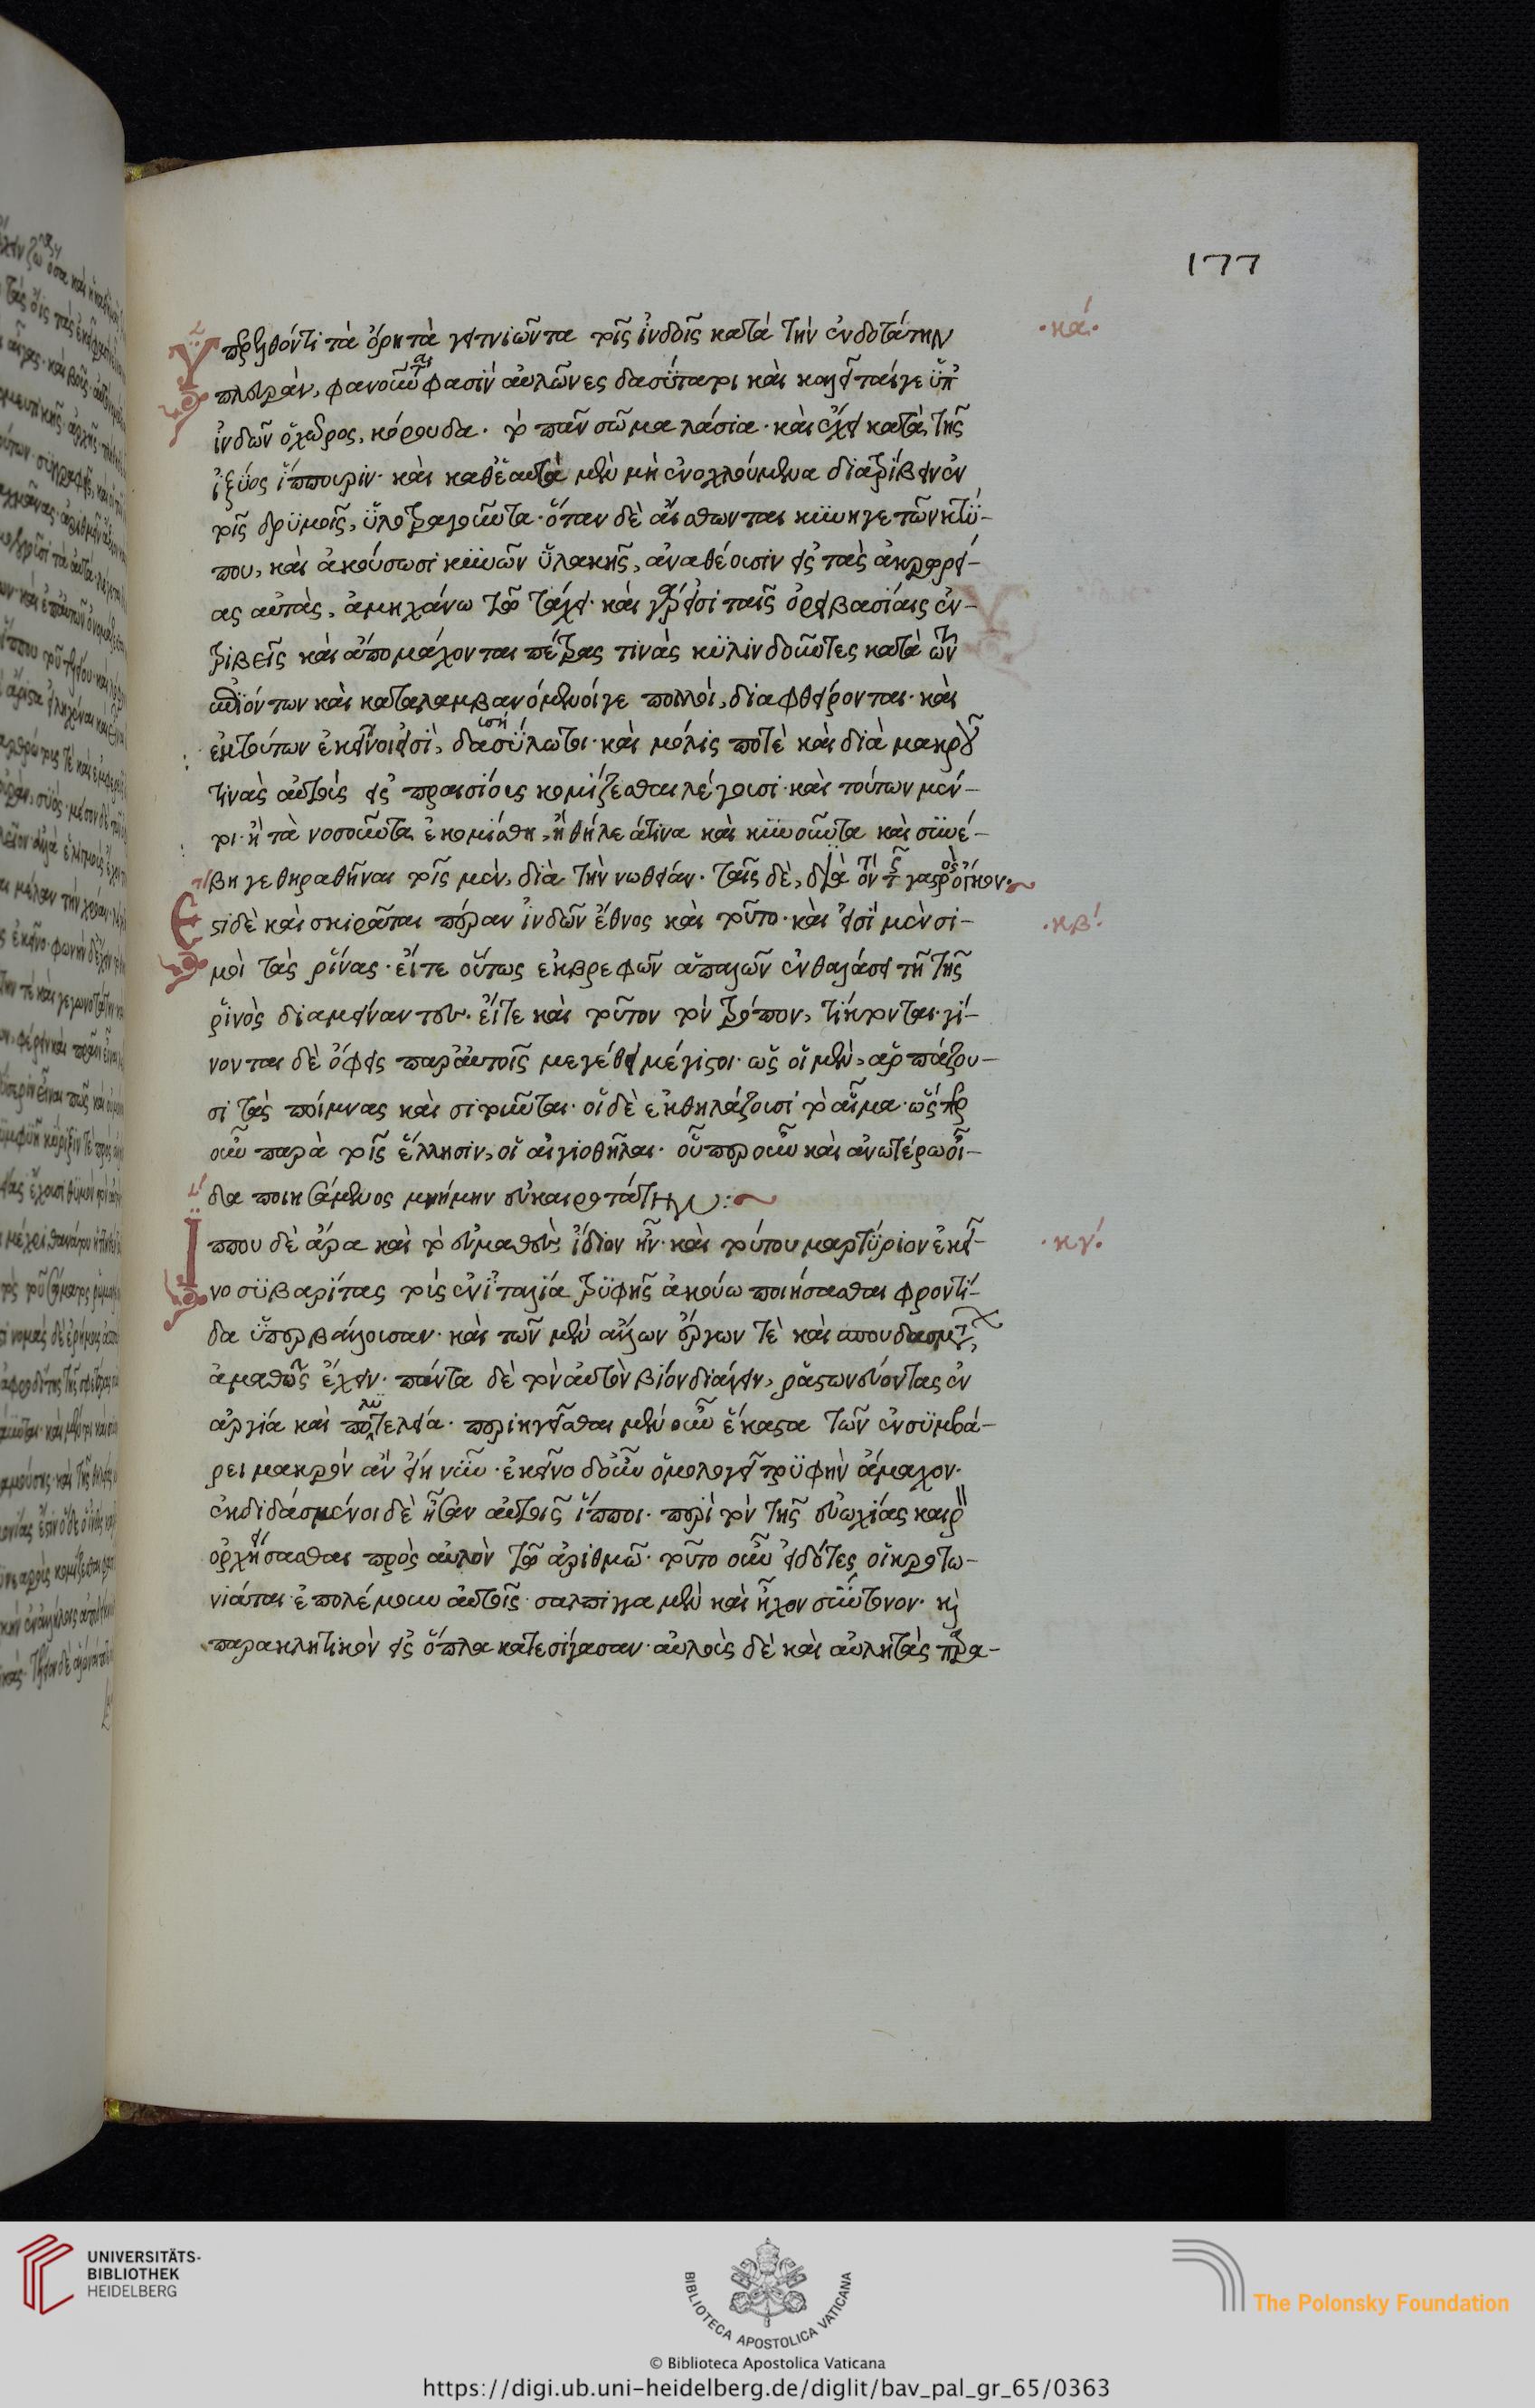 177
Ὑπερελθόντι τὰ ὄρη τὰ γειτνιῶντα τοῖς ἰνδοῖς κατὰ τὴν ἐνδοτάτην ·κα΄·
πλευρὰν, φανοῦνταί φασὶν αὐλῶνες δασύτατοι καὶ καλεῖταί γε ὑπ'
ἰνδῶν ὁ χῶρος, κόρουδα· τὸ πᾶν σῶμα λάσια· καὶ ἔχει κατὰ τῆς
ἰξύος ἵππουριν· καὶ καθ' ἑαυτὰ μὲν μὴ ἐνοχλούμενα διατρίβειν ἐν
τοῖς δρυμοῖς, ὑλοτραγοῦντα· ὅταν δὲ αἴσθωνται κυνηγετῶν κτύ-
που, καὶ ἀκούσωσι κυνῶν ὑλακῆς, ἀναθέουσιν εἰς τὰς ἀκρωρεί-
ας αὐτὰς, ἀμηχάνω τῶ τάχει· καὶ γάρ εἰσι ταῖς ὀρειβασίαις ἐν-
τριβεῖς καὶ ἀπομάχονται πέτρας τινὰς κυλινδοῦντες κατὰ τῶν
ἐπιόντων καὶ καταλαμβανόμενοί γε πολλοὶ, διαφθείρονται· καὶ
ἐκ τούτων ἐκεῖνοι εἰσὶ, δυσάλωτοι· καὶ μόλις ποτὲ καὶ διὰ μακροῦ
τινὰς αὐτοὺς εἰς πραισίους κομίζεσθαι λέγουσι· καὶ τούτων μέν-
τοι· ἢ τὰ νοσοῦντα ἐκομίσθη, ἢ θήλεά τινα καὶ κυοῦντα καὶ συνέ-
βη γε θηραθῆναι τοῖς μὲν, διὰ τὴν νωθείαν· ταῖς δὲ, διὰ τὸν τῆς γαστρὸς ὄγκον·
Ἔστι δὲ καὶ σκιρᾶται πέραν ἰνδῶν ἔθνος καὶ τοῦτο· καὶ εἰσὶ μὲν σι- ·κβ΄·
μοὶ τὰς ῥῖνας· εἴτε οὕτως ἐκ βρεφῶν ἁπαλῶν ἐνθλάσει τῆ τῆς
ῥινὸς διαμείναντες· εἴτε καὶ τοῦτον τὸν τρόπον, τίκτονται· γί-
νονται δὲ ὄφεις παρ' αὐτοῖς μεγέθει μέγιστοι· ὡς οἱ μὲν, ἁρπάζου-
σι τὰς ποίμνας καὶ σιτοῦνται· οἱ δὲ ἐκθηλάζουσι τὸ αἷμα· ὥσπερ
οὖν παρὰ τοῖς ἕλλησιν, οἱ αἰγιοθῆλαι· οὗπερ οὖν καὶ ἀνωτέρω οἶ-
δα ποιησάμενος μνήμην εὐκαιροτάτην:
Ἵππου δὲ ἄρα καὶ τὸ εὐμαθὲς ἴδιον ἦν· καὶ τούτου μαρτύριον ἐκεῖ- ·κγ΄·
νο συβαρίτας τοὺς ἐν ἰταλία τρυφῆς ἀκούω ποιήσασθαι φροντί-
δα ὑπερβάλλουσαν· καὶ τῶν μὲν ἄλλων ἔργων τὲ καὶ σπουδασμάτων,
ἀμαθῶς ἔχειν· πάντα δὲ τὸν αὐτὸν βίον διάγειν, ῥαστωνεύοντας ἐν
ἀργία καὶ πολυτελεία· περιηγεῖσθαι μὲν οὖν ἕκαστα τῶν ἐν συμβά-
ρει μακρὸν ἂν εἴη νῦν· ἐκεῖνο δ' οὖν ὁμολογεῖ τρυφὴν ἄμαχον·
ἐκδιδασμένοι δὲ ἦσαν αὐτοῖς ἵπποι· περὶ τὸν τῆς εὐωχίας καιρὸν
ὀρχήσασθαι πρὸς αὐλὸν τῶ ἀριθμῶ· τοῦτο οὖν εἰδότες οἱ κροτω-
νιάται ἐπολέμουν αὐτοῖς· σάλπιγγα μὲν καὶ ἦχον σύντονον· καὶ
παρακλητικὸν εἰς ὅπλα κατεσίγασαν· αὐλοὺς δὲ καὶ αὐλητὰς παρα-
UNIVERSITÄTS-
BIBLIOTHEK
HEIDELBERG
BIBLIOTECA APOSTOLICA VATICANA
The Polonsky Foundation
© Biblioteca Apostolica Vaticana
https://digi.ub.uni-heidelberg.de/diglit/bav_pal_gr_65/0363